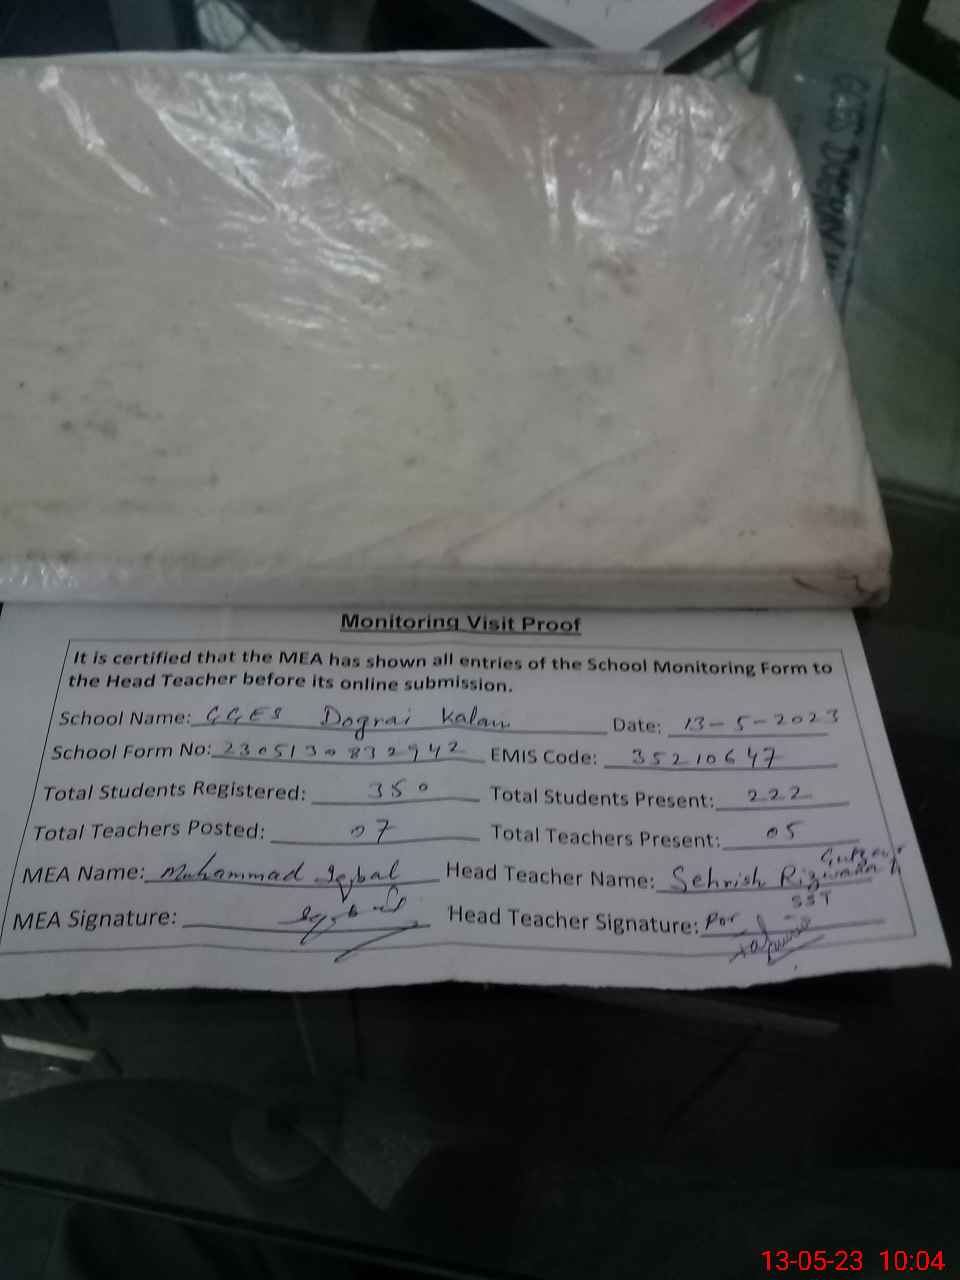 Monitoring Visit Proof
It is certified that the MEA has shown all entries of the School Monitoring Form to
the Head Teacher before its online submission.
School Name: GGES Dograi Kalan Date: 13-5-2023
School Form No: 230513083294 2 EMIS Code: 35210647
Total Students Registered: 350 Total Students Present: 222
Total Teachers Posted: 07 Total Teachers Present: 05
MEA Name: Muhammad Iqbal Head Teacher Name: Sehrish Rizwana
SST
MEA Signature: Head Teacher Signature: For
13-05-23 10:04